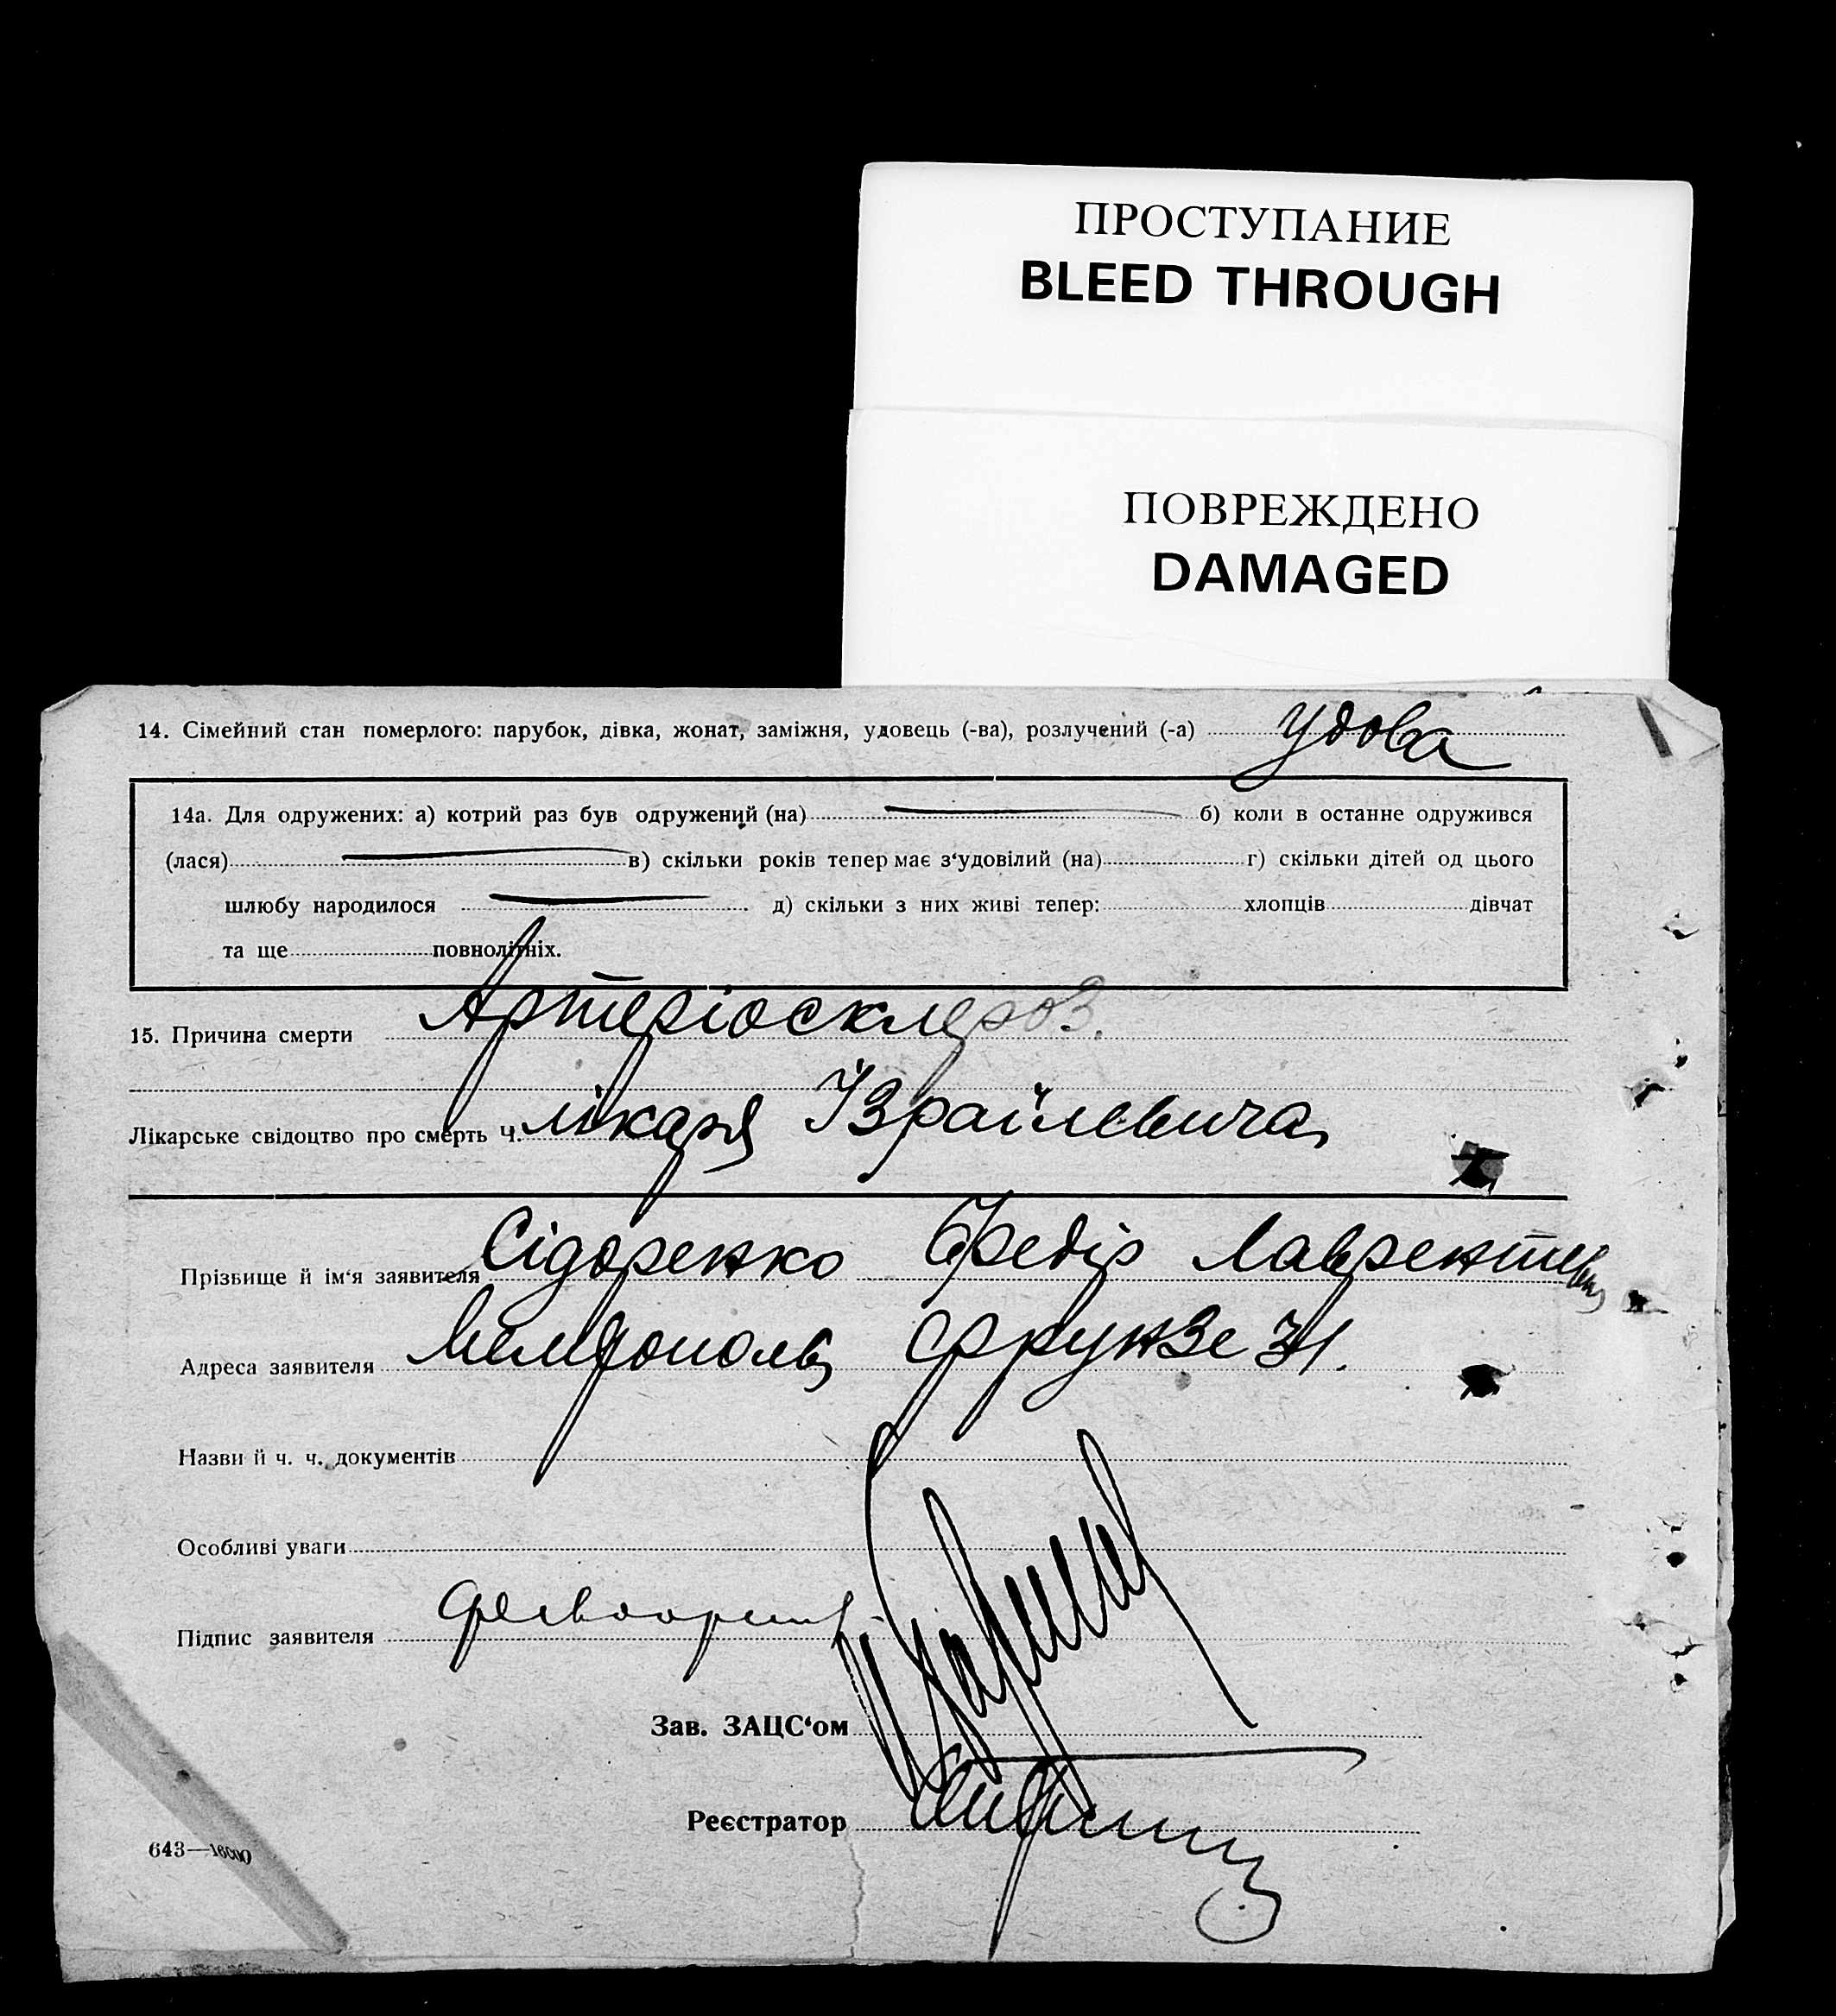 ПРОСТУПАНИЕ
BLEED THROUGH
ПОВРЕЖДЕНО
DAMAGED
14. Сімейний стан померлого: парубок, дівка, жонат, заміжня, удовець (-ва), розлучений (-а) удова
14а. Для одружених: а) котрий раз був одружений (на) б) коли в останне одружився
(лася) в) скільки років тепер має з‘удовілий (на) г) скільки дітей од цього
шлюбу народилося д) скільки з них живі тепер: хлопців дівчат
та ще повнолітніх.
15. Причина смерти Артеріосклероз.
Лікарське свідоцтво про смерть Ч. лікаря Ізраїлевича
Прізвище й ім‘я заявителя Сідоренко Федір Лаврентьевич
Адреса заявителя Мелітополь Фрунзе
Назви й ч. ч. документів
Особливі уваги
Підпис заявителя
Зав. ЗАЦС‘ом
Реєстратор
643—16000